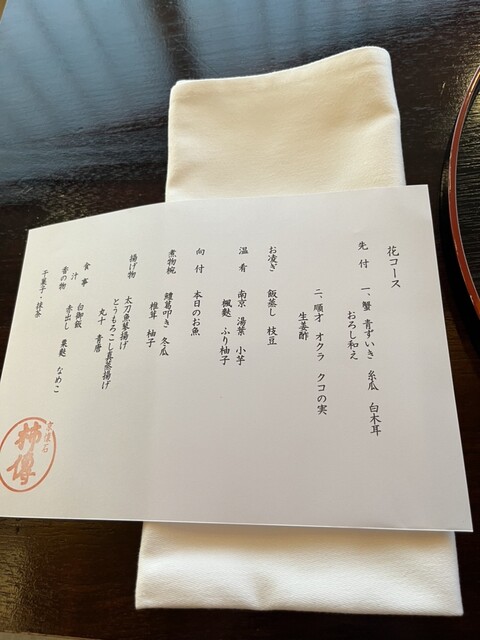 花コース
先付 一、蟹 青ずいき 糸瓜 白木耳
おろし和え
二、順才 オクラ クコの実
生姜酢
お凌ぎ 飯蒸し 枝豆
温肴 南京 湯葉 小芋
楓麩 ふり柚子
向付 本日のお魚
煮物椀 鱧葛叩き 冬瓜
椎茸 柚子
揚げ物 太刀魚琴揚げ
とうもろこし真蒸揚げ
丸十 青唐
食事 白御飯
汁 赤出し 粟麩 なめこ
香の物
干菓子・抹茶
京懐石
柿傳